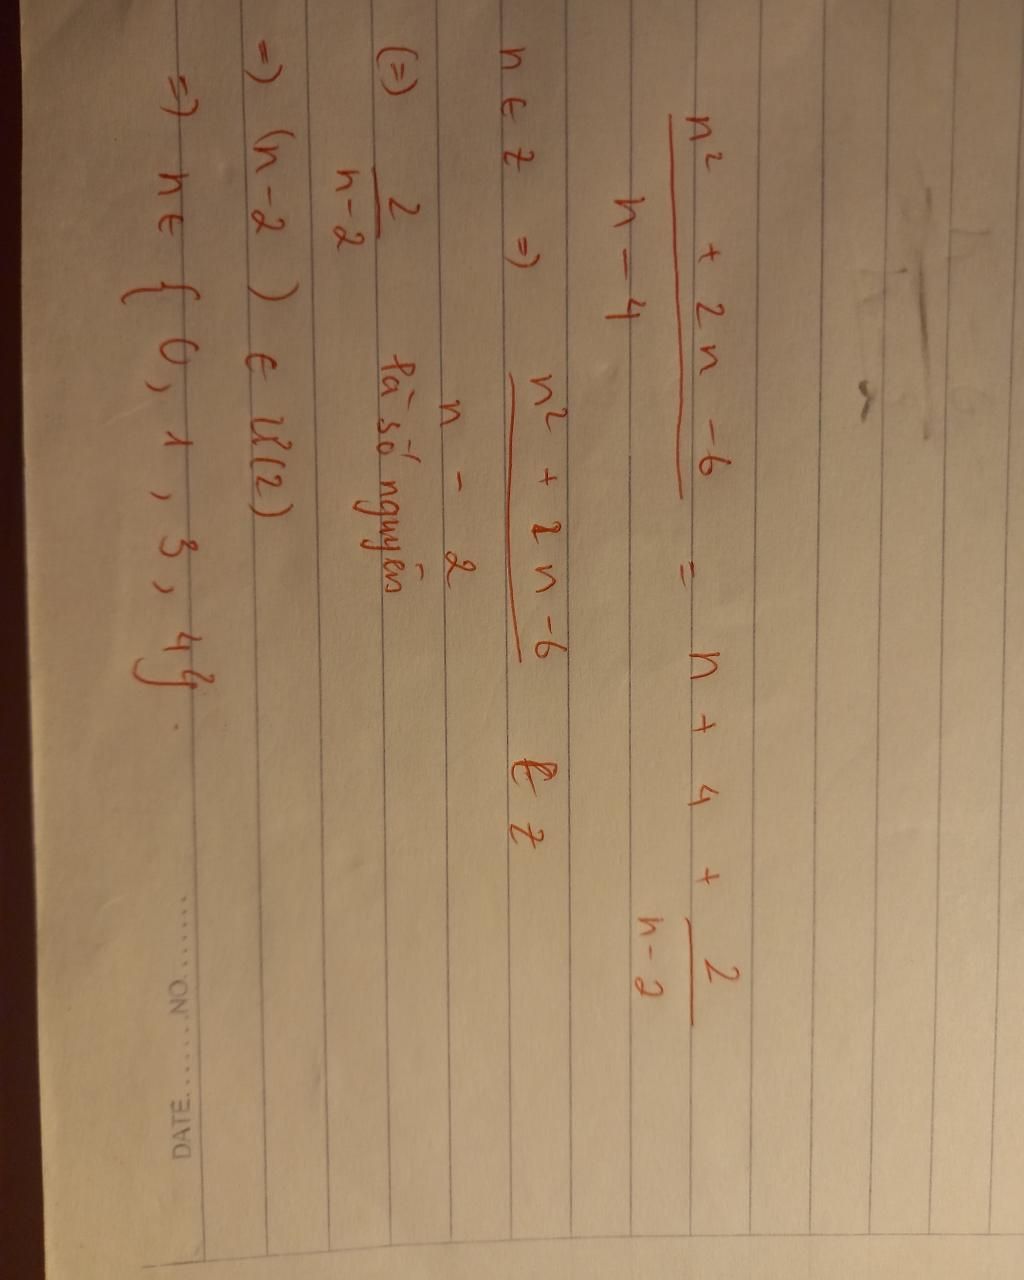 n² + 2n - 6 = n + 4 + 2
n - 4 n - 2
n ∈ z => n² + 2n - 6 ∈ z
n - 2
(=) 2 là số nguyên
n - 2
=) (n - 2) ∈ Ư(2)
=) n ∈ { 0, 1, 3, 4}.
DATE.......NO.......